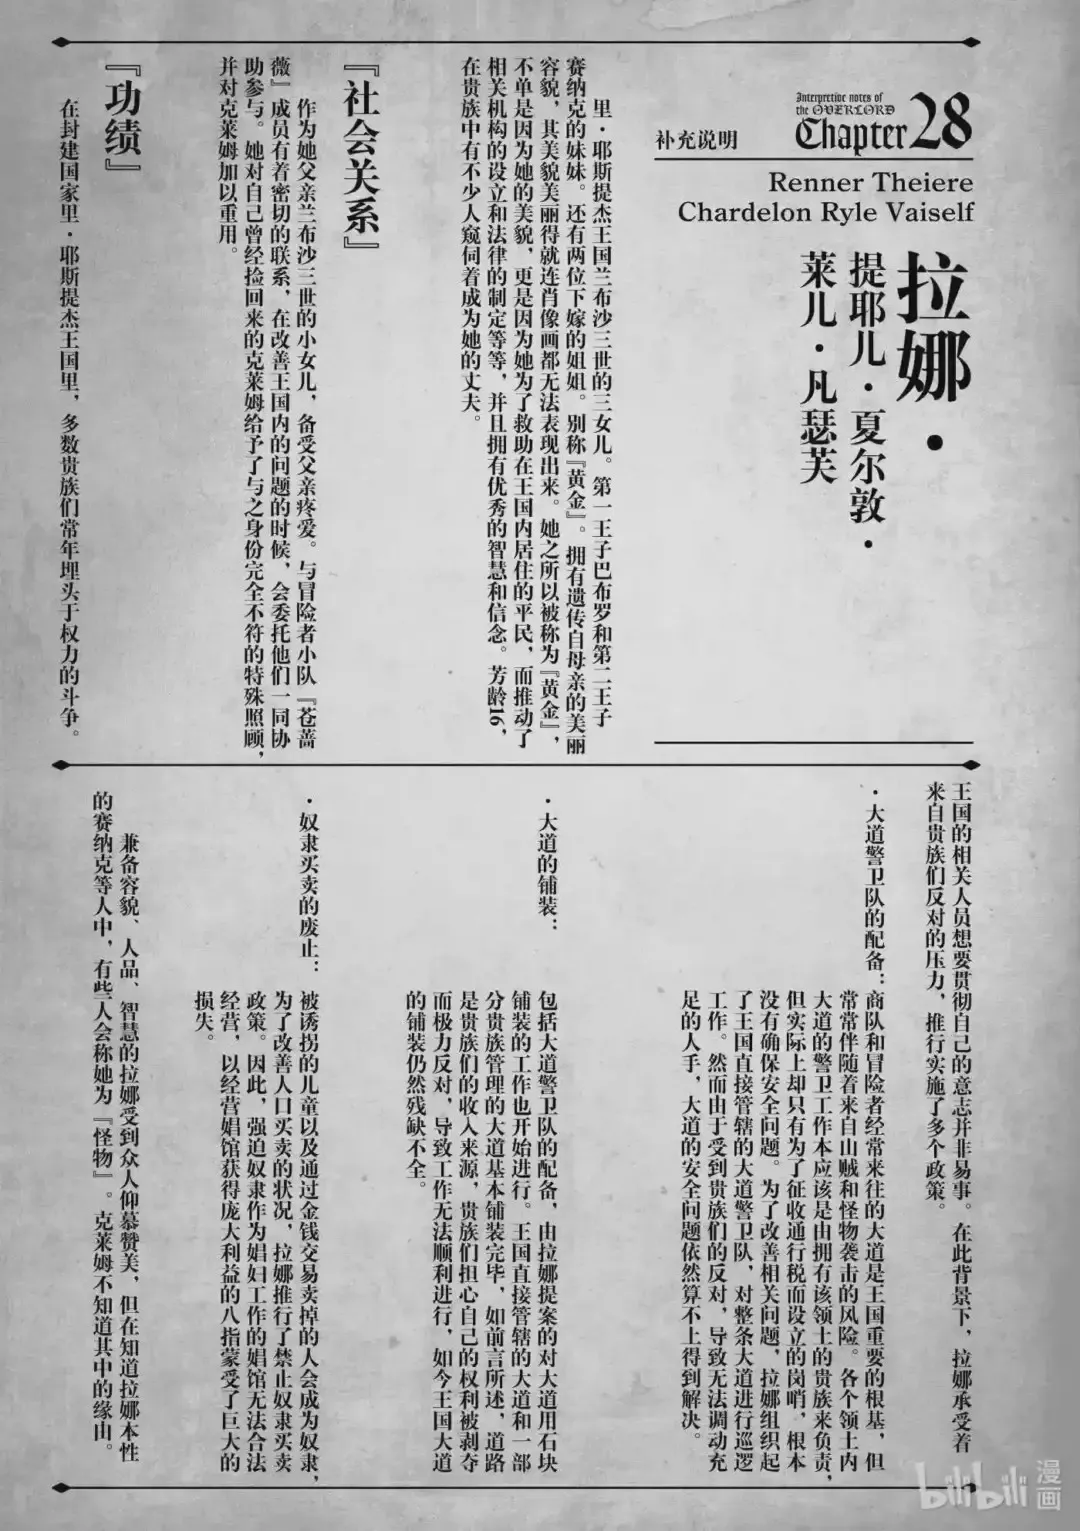 Interpretive notes of
the OVERLORD
Chapter 28
补充说明
Renner Theiere
Chardelon Ryle Vaiself
拉娜·
提耶儿·夏尔敦·
莱儿·凡瑟芙
里·耶斯提杰王国兰布沙三世的三女儿。第一王子巴布罗和第二王子
赛纳克的妹妹。还有两位下嫁的姐姐。别称『黄金』。拥有遗传自母亲的美丽
容貌，其美貌美丽得就连肖像画都无法表现出来。她之所以被称为『黄金』，
不单是因为她的美貌，更是因为她为了救助在王国内居住的平民，而推动了
相关机构的设立和法律的制定等等，并且拥有优秀的智慧和信念。芳龄16，
在贵族中有不少人窥伺着成为她的丈夫。
『社会关系』
作为她父亲兰布沙三世的小女儿，备受父亲疼爱。与冒险者小队『苍蔷
薇』成员有着密切的联系，在改善王国内的问题的时候，会委托他们一同协
助参与。她对自己曾经捡回来的克莱姆给予了与之身份完全不符的特殊照顾，
并对克莱姆加以重用。
『功绩』
在封建国家里·耶斯提杰王国里，多数贵族们常年埋头于权力的斗争。
王国的相关人员想要贯彻自己的意志并非易事。在此背景下，拉娜承受着
来自贵族们反对的压力，推行实施了多个政策。
·大道警卫队的配备：商队和冒险者经常来往的大道是王国重要的根基，但
常常伴随着来自山贼和怪物袭击的风险。各个领土内
大道的警卫工作本应该是由拥有该领土的贵族来负责，
但实际上却只有为了征收通行税而设立的岗哨，根本
没有确保安全问题。为了改善相关问题，拉娜组织起
了王国直接管辖的大道警卫队，对整条大道进行巡逻
工作。然而由于受到贵族们的反对，导致无法调动充
足的人手，大道的安全问题依然算不上得到解决。
·大道的铺装：包括大道警卫队的配备，由拉娜提案的对大道用石块
铺装的工作也开始进行。王国直接管辖的大道和一部
分贵族管理的大道基本铺装完毕，如前言所述，道路
是贵族们的收入来源，贵族们担心自己的权利被剥夺
而极力反对，导致工作无法顺利进行，如今王国大道
的铺装仍然残缺不全。
·奴隶买卖的废止：被诱拐的儿童以及通过金钱交易卖掉的人会成为奴隶，
为了改善人口买卖的状况，拉娜推行了禁止奴隶买卖
政策。因此，强迫奴隶作为娼妇工作的娼馆无法合法
经营，以经营娼馆获得庞大利益的八指蒙受了巨大的
损失。
兼备容貌、人品、智慧的拉娜受到众人仰慕赞美，但在知道拉娜本性
的赛纳克等人中，有些人会称她为『怪物』。克莱姆不知道其中的缘由。
bilibili 漫画